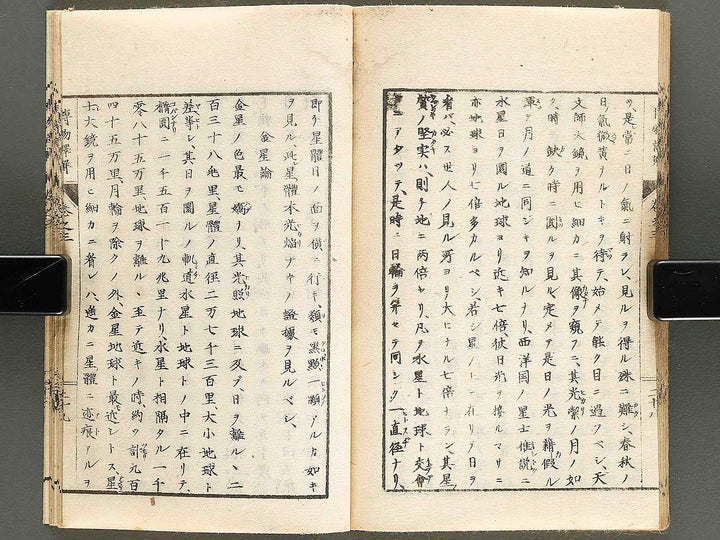 ツ、是常ニ日ノ氣ニ射ラレ、見ルヿヲ得ル殊ニ難シ、春秋ノ
日氣微黃ナルトキヲ待テ、始メテ能ク目ニ過フベシ、天
文師大鏡ヲ用ヒ細カニ其像ヲ窺フニ、其光
時ニ缺ク時ニ圓ルヲ見ル、定メテ是日ノ光ヲ藉假ル
ヿ月ノ道ニ同シキヲ知ルナリ、西洋国ノ星士
水星日ヲ圓ル地球ヨリ近キ七倍彼日光ヲ接ルマサニ
亦地球ヨリ七倍多カルベシ、若シ星ノ上ニ在リテ日ヲ
看バ、必ス世人ノ見ル所ヨリ大ヒナル七倍ナラン、其星
質ノ堅実ハ、則チ地ニ両倍セリ、凡ソ水星ト地球ト交會
ニアタツテ、是時ニ日輪ヲ并セテ同シク一直径ナリ、
即チ星體日ノ面ヲ横ニ行キ、類モ黒點一顆アルカ如キ
ヲ見ル、此星體本光焔ナキノ證據ヲ見ルベシ、
金星論
金星ノ色最モ嬌ナリ、其光照地球ニ及ブ、日ヲ離ル、二
百三十八兆里星體ノ直径二万七千三百里、大小地球ト
差等シ、其日ヲ圓ルノ軌道水星ト地球トノ中ニ在リテ、
楕圓一千五百一十九兆里ナリ、水星ト相隔タル一千
零八十五万里、地球ヲ離ル、至テ近キノ時約ソ計九百
四十五万里、月輪ヲ除クノ外、金星地球ト最近シトス、星
士大鏡ヲ用ヒ細カニ看レバ、適カニ星體ニ迹痕アルヲ
博物
巻之三